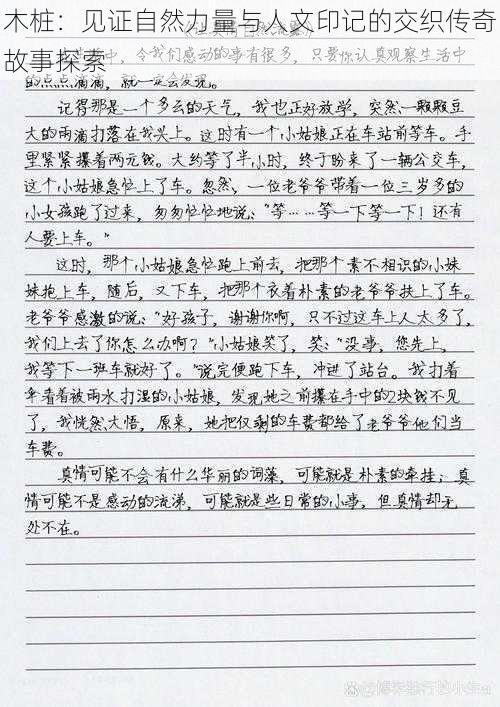 木桩：见证自然力量与人文印记的交织传奇
故事探索
生活中，令我们感动的事有很多，只要你认真观察生活中
的点点滴滴，就一定会发现。
记得那是一个多云的天气，我也正好放学，突然一颗颗豆
大的雨滴打落在我头上。这时有一个小姑娘正在车站前等车。手
里紧紧攥着两元钱。大约等了半小时，终于盼来了一辆公交车，
这个小姑娘急忙上了车。忽然，一位老爷爷带着一位三岁多的
小女孩跑了过来，匆匆忙忙地说："等……等一下等一下！还有
人要上车。"
这时，那个小姑娘急忙跑上前去，把那个素不相识的小妹
妹抱上车，随后，又下车，把那个衣着朴素的老爷爷扶上了车。
老爷爷感激的说："好孩子，谢谢你啊，只不过这车上人太多了，
我们上去了你怎么办啊？"小姑娘笑了，笑："没事，您先上，
我等下一班车就好了。"说完便跑下车，冲进了站台。我打着
伞看着被雨水打湿的小姑娘，发现她之前攥在手中的2块钱不见
了，我恍然大悟，原来，她把仅剩的车费都给了老爷爷他们当
车费。
真情可能不会有什么华丽的词藻，可能就是朴素的牵挂；真
情可能不是感动的流涕，可能就是些日常的小事，但真情却无
处不在。